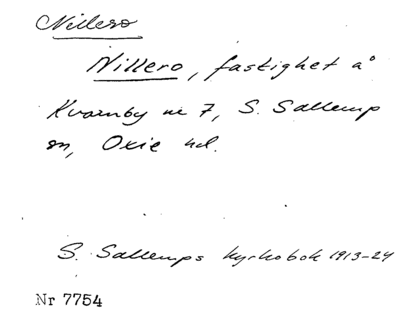 Nillero
Nillero, fastighet å
Kvarnby nr 7, S. Sallerup
sn, Oxie hd.
S. Sallerups kyrkobok 1913-24
Nr 7754